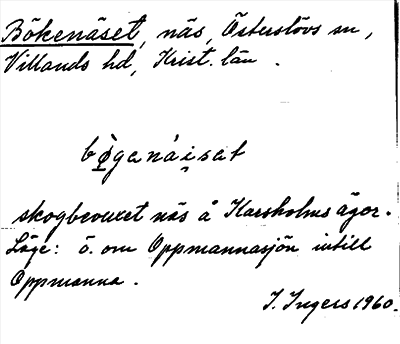 Bökenäset, näs, Österslövs sn,
Villands hd, Krist. län.
bø̀genái̯sat
skogbevuxet näs å Karsholms ägor.
Läge: ö. om Oppmannasjön intill
Oppmanna.
I. Ingers 1960.